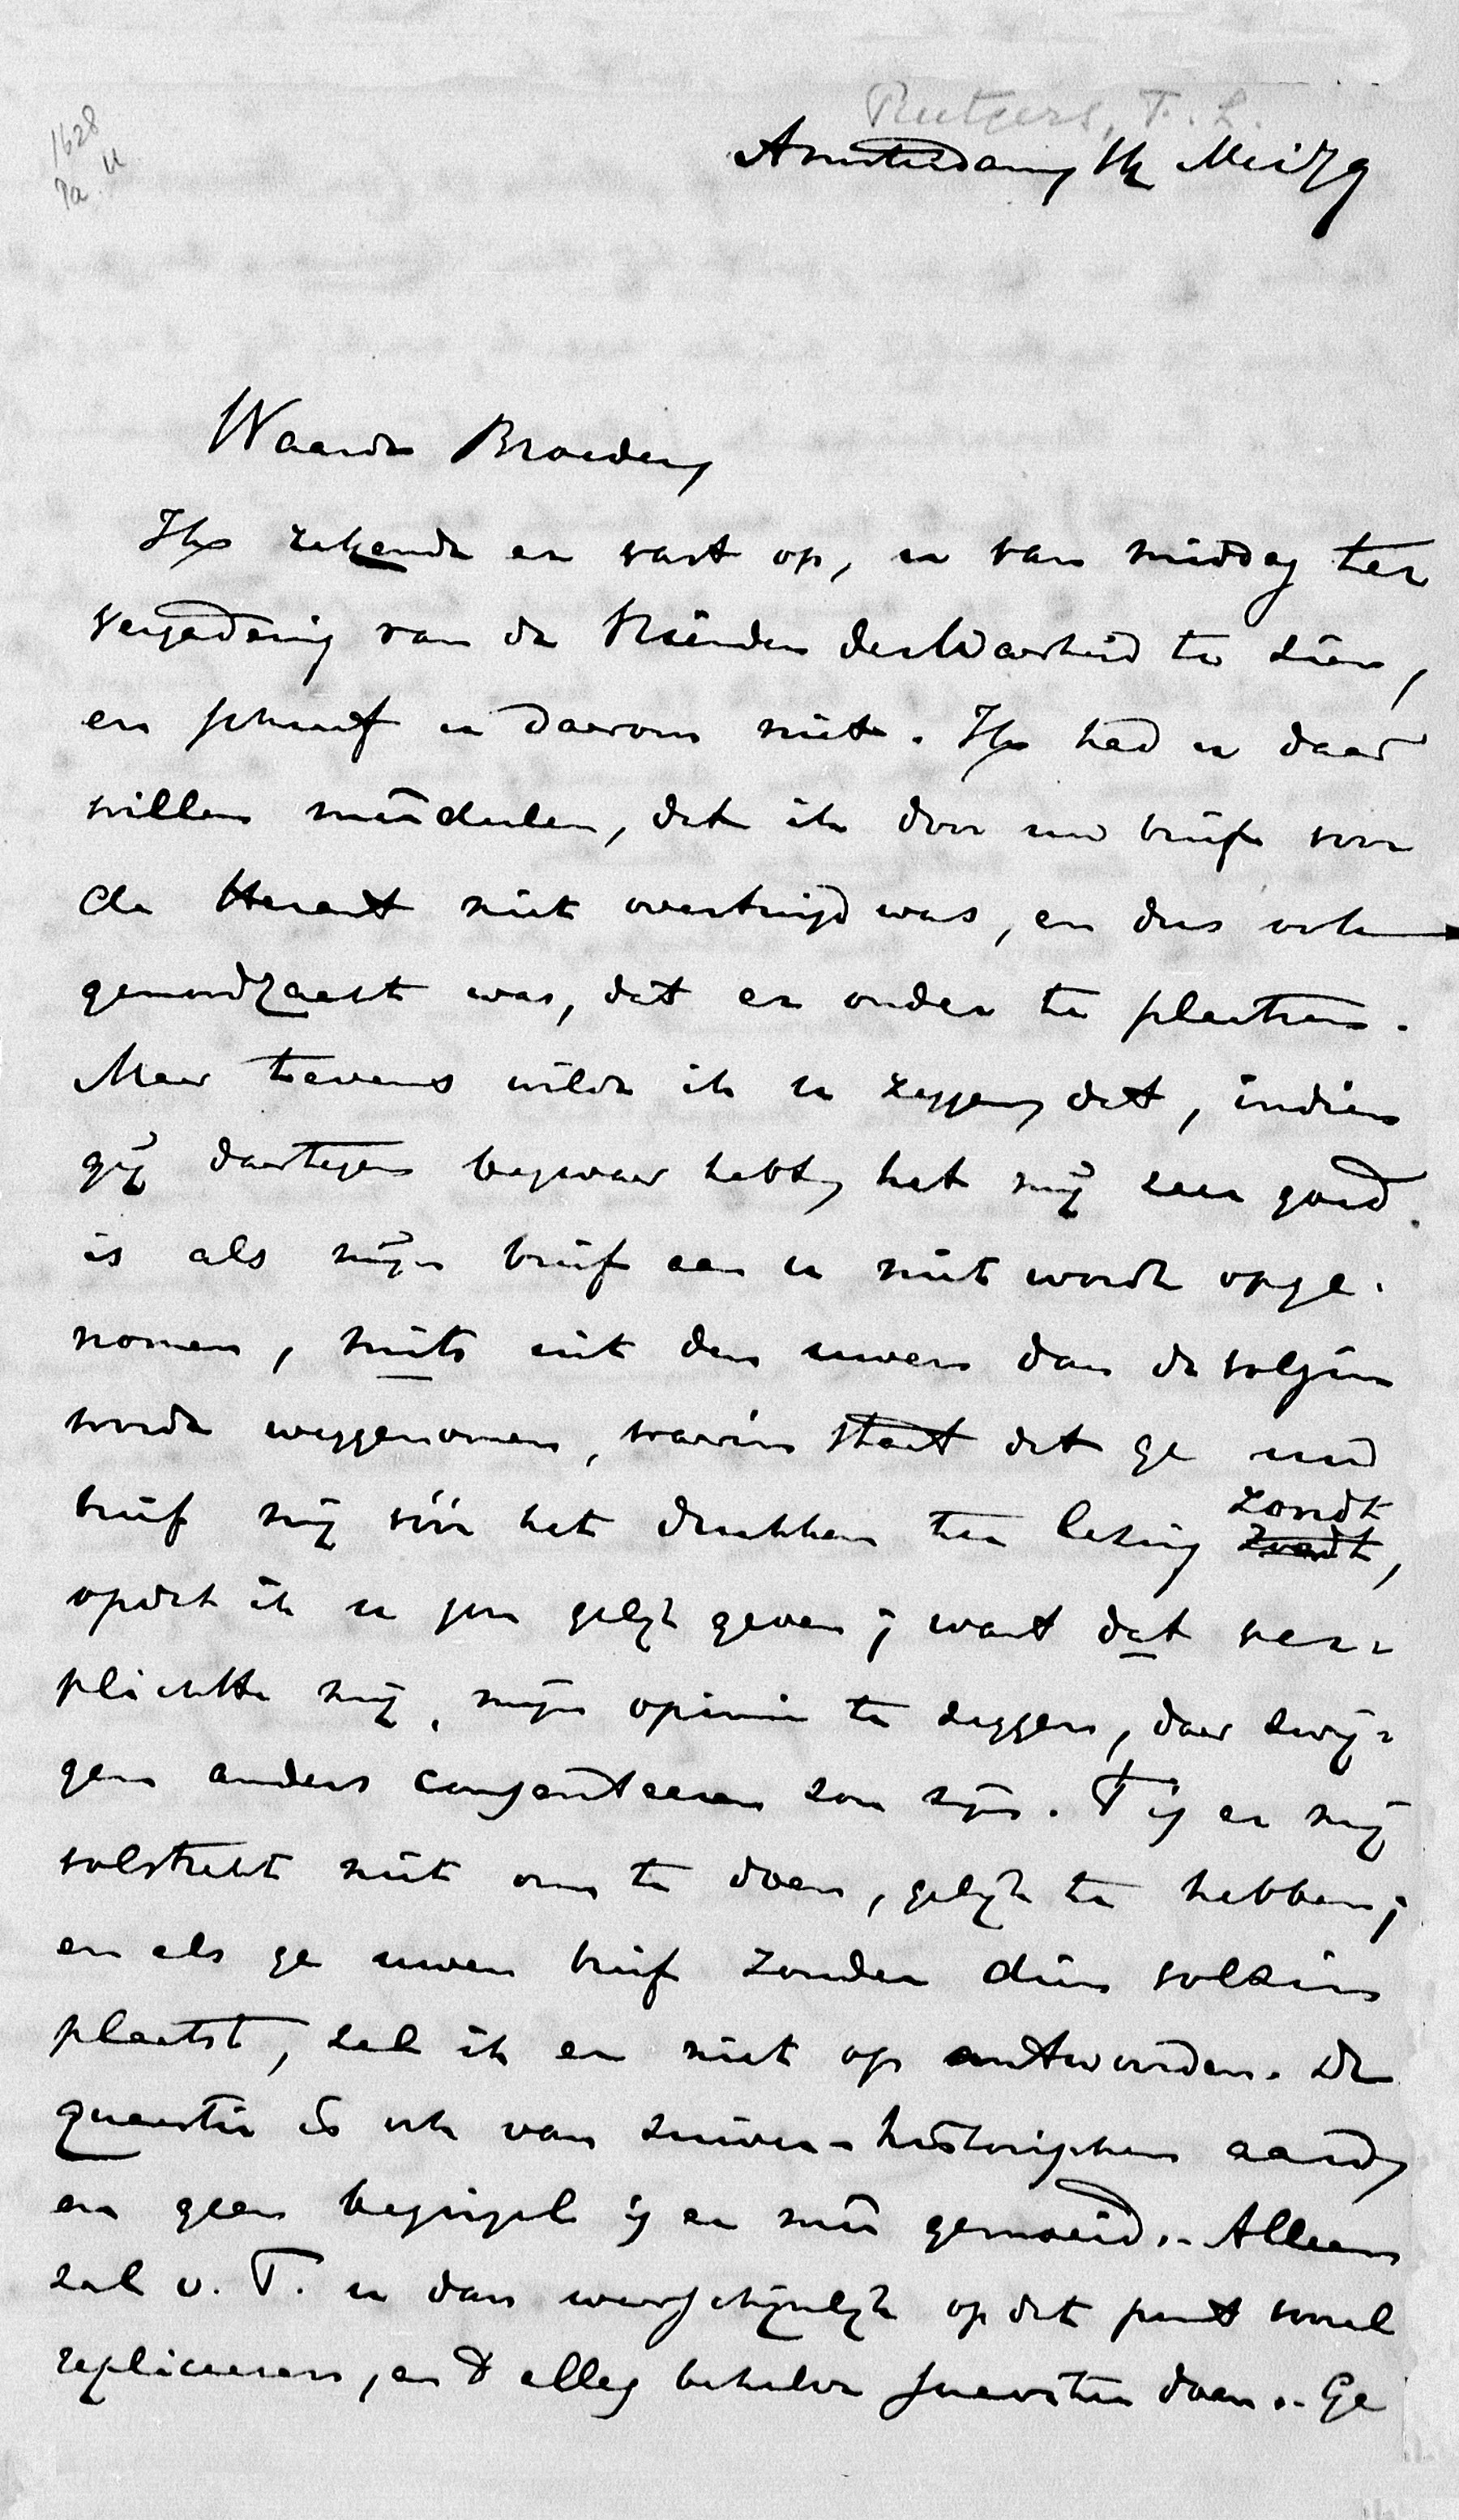 1628
Pa. U
Rutgers, F. L.
Amsterdam, Mei 79
Waarde Broeder,
Ik rekende er vast op, u van middag ter
vergadering van de Vrienden der Waarheid te zien,
en schreef u daarom niet. Ik had u daar
willen meêdeelen, dat ik door uw brief voor
de Heraut niet overtuigd was, en dus ook
genoodzaakt was, dat er onder te plaatsen.
Maar tevens wilde ik u zeggen, dat, indien
gij daartegen bezwaar hebt, het mij zeer goed
is als mijn brief aan u niet wordt opge-
nomen, mits uit den uwen dan de volzin
worde weggenomen, waarin staat dat ge uw
brief mij vóór het drukken ter lezing zondt,
opdat ik u zou gelijk geven; want dat ver-
plichtte mij, mijn opinie te zeggen, daar zwij-
gen anders consenteeren zou zijn. 't Is er mij
volstrekt niet om te doen, gelijk te hebben;
en als ge uwen brief zonder dien volzin
plaatst, zal ik er niet op antwoorden. De
quaestie is ook van zuiver-historischen aard,
en geen beginsel is er meê gemoeid. - Alleen
zal v. T. u dan waarschijnlijk op dat punt wel
repliceeren, en 't alles behalve suaviter doen. - Ge